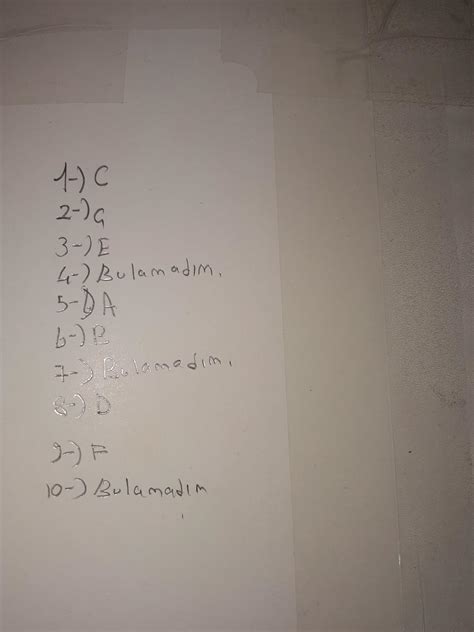 1-) C
2-) G
3-) E
4-) Bulamadım.
5-) A
6-) B
7-) Bulamadım.
8-) D
9-) F
10-) Bulamadım